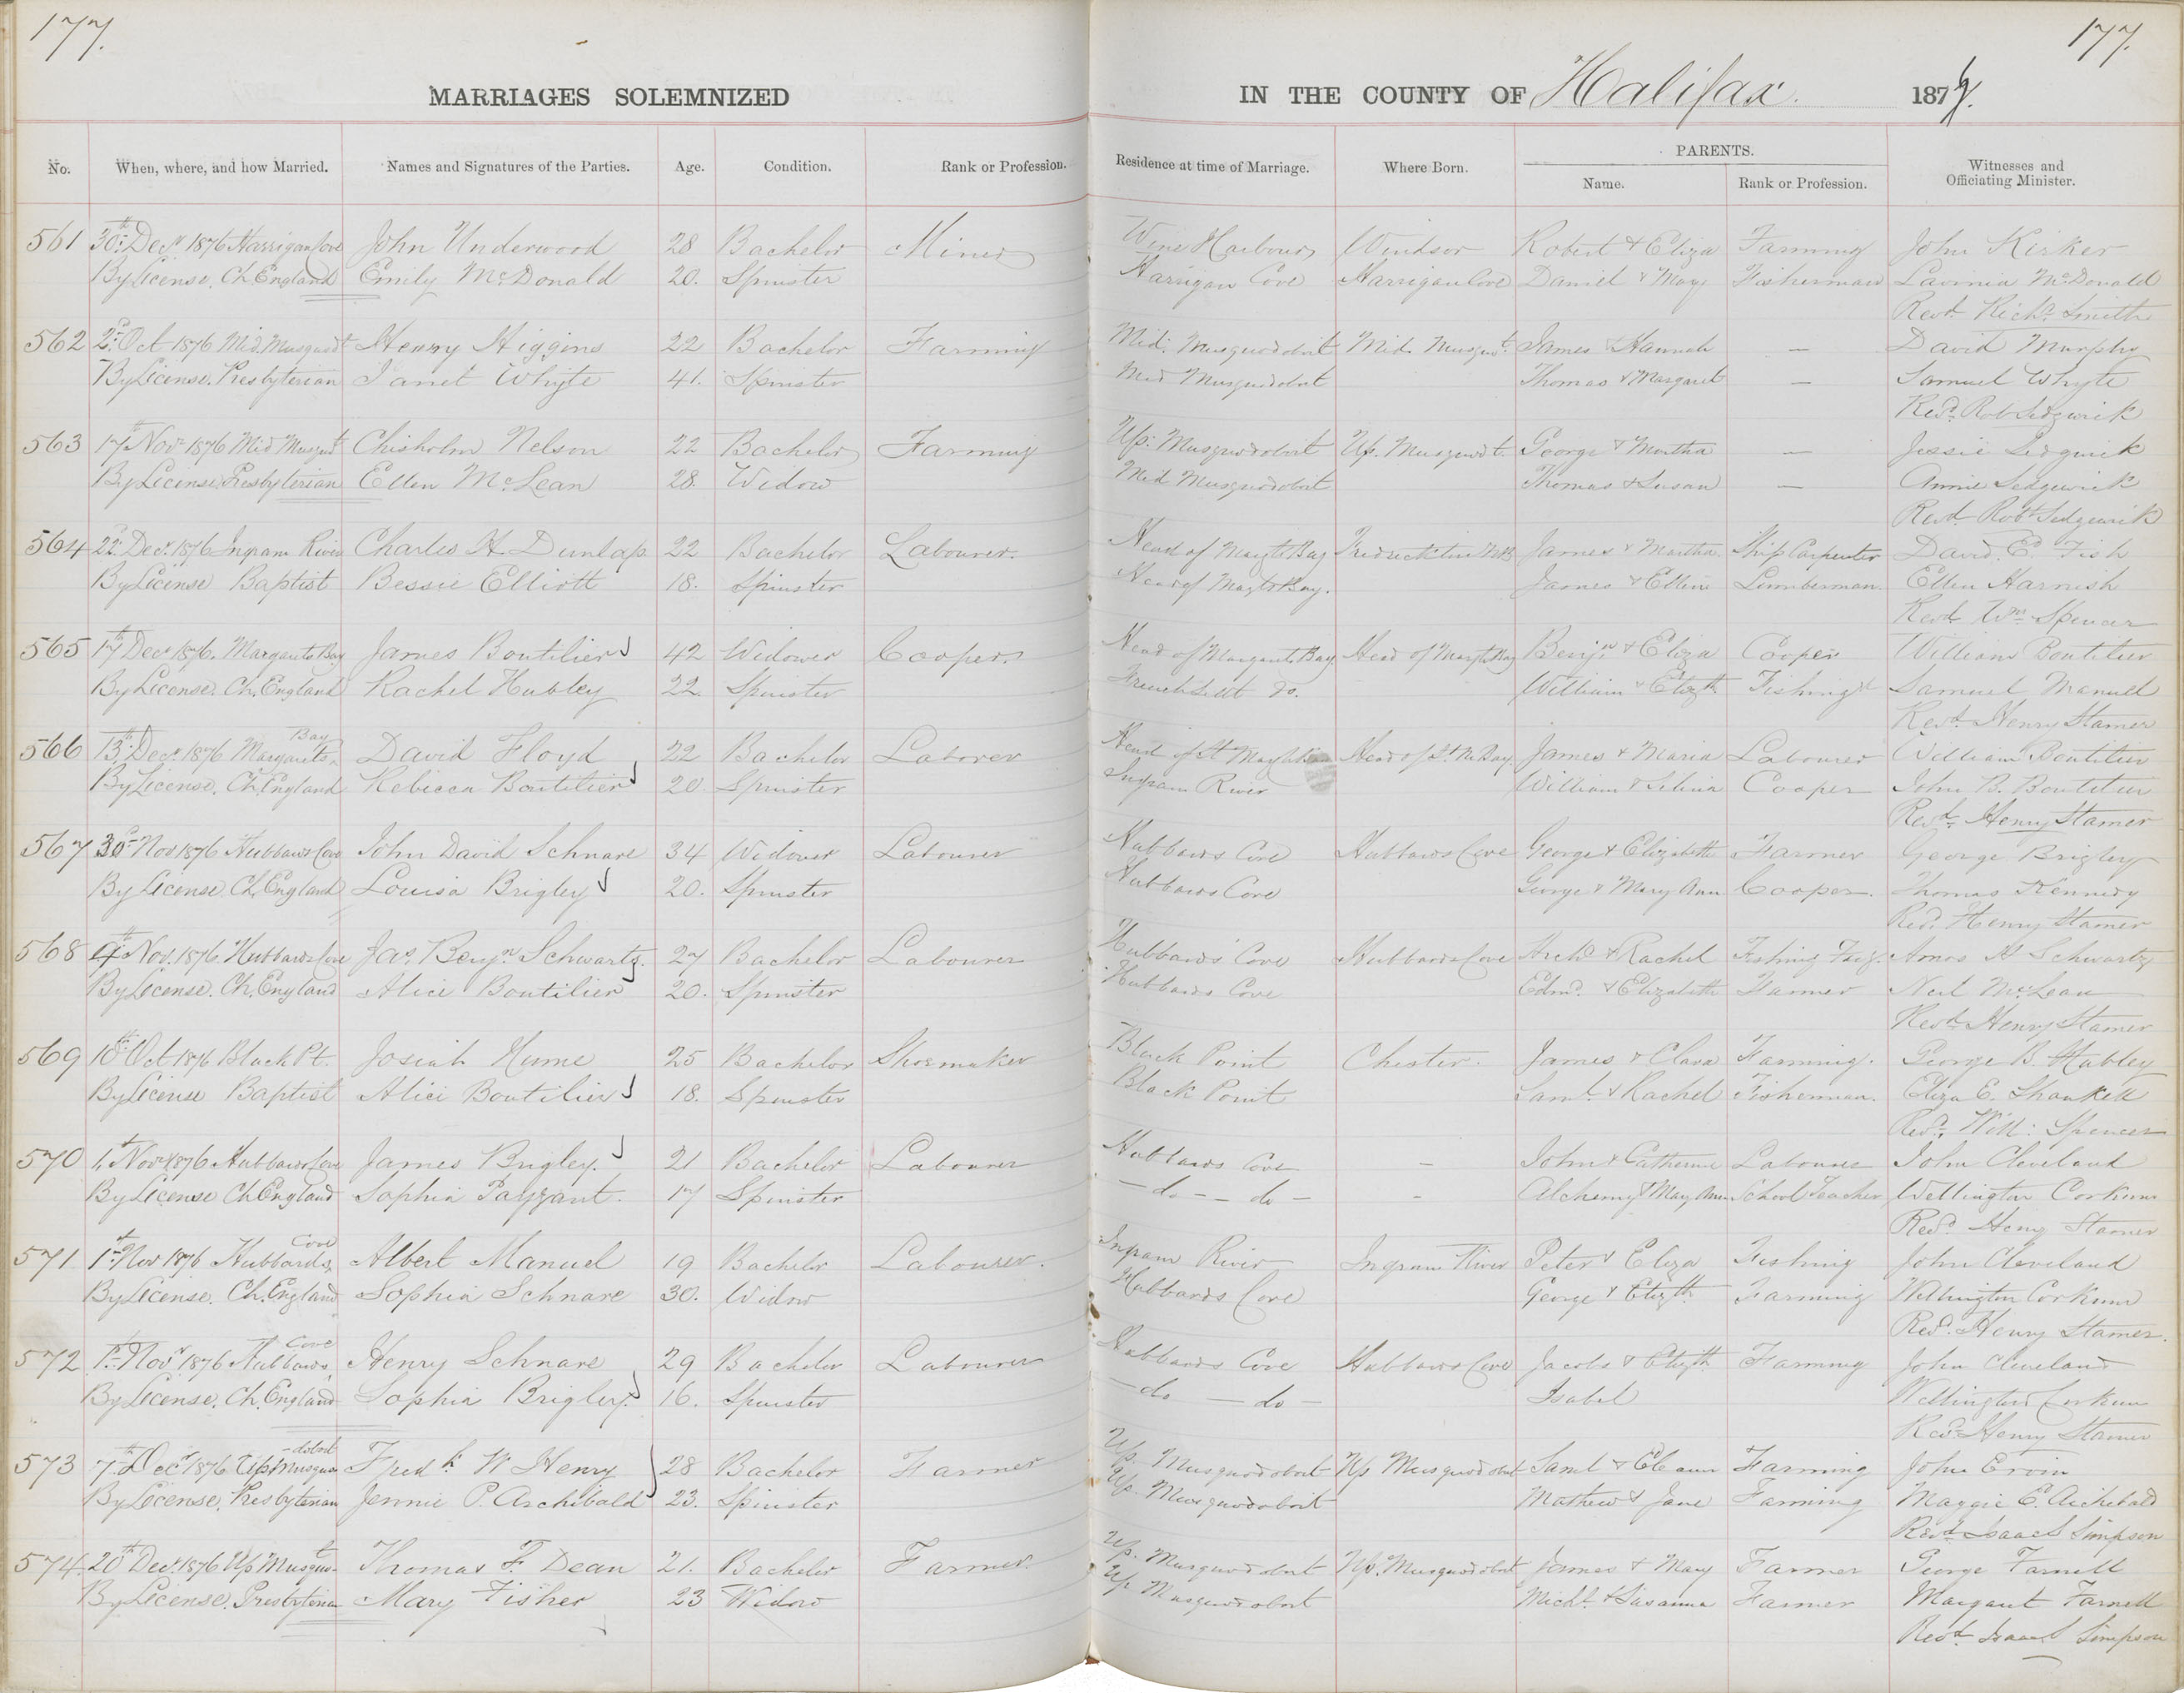 177. 177.
MARRIAGES SOLEMNIZED IN THE COUNTY OF Halifax. 1876.
No. When, where, and how Married. Names and Signatures of the Parties. Age. Condition. Rank or Profession. Residence at time of Marriage. Where Born. PARENTS. Name. Rank or Profession. Witnesses and Officiating Minister.
561 30th Decr 1876 Harrigan Cove John Underwood 28 Bachelor Miner Wine Harbour Windsor Robert & Eliza Farming John Kirker
By License. Ch. England Emily McDonald 20. Spinster Harrigan Cove Harrigan Cove Daniel & Mary Fisherman Lavinia McDonald
Revd. Richd. Smith
562 2d Oct 1876 Mid. Musquodt Henry Higgins 22 Bachelor Farming Mid: Musquodoboit Mid. Musqut. James & Hannah — David Murphy
By License. Presbyterian Janet Whyte 41. Spinster Mid Musquodoboit Thomas & Margaret — Samuel Whyte
Revd. Rob Sedgwick
563 17th Novr 1876 Mid Musqudt Chisholm Nelson 22 Bachelor Farming Up: Musquodoboit Up. Musquodt. George & Martha — Jessie Sedgwick
By License Presbyterian Ellen McLean 28. Widow Mid Musquodoboit Thomas & Susan — Annie Sedgewick
Revd. Robt Sedgewick
564 22d Decr. 1876 Ingram River Charles H. Dunlap. 22 Bachelor Labourer. Head of Margts Bay James & Martha. Ship Carpenter David. E. Fish
By License Baptist Bessie Elliott 18. Spinster Head of Margts Bay. James & Ellen Lumberman. Ellen Harnish
Revd Wm Spencer
565 17th Decr 1876. Margarets Bay James Boutilier 42 Widower Cooper. Head of Margarets Bay Head of Margts Bay Benjn & Eliza Cooper William Boutilier
By License. Ch. England Rachel Hubley 22. Spinster French Settt do. William & Elizth Fishing Samuel Manuel
Revd. Henry Stamer
566 13th Decr. 1876 Margarets Bay David Floyd 22 Bachelor Laborer Head of St Margts Bay Head of St. M. Bay. James & Maria Labourer William Boutilier
By License. Ch. England Rebecca Boutilier 20 Spinster Ingram River William & Selina Cooper John B. Boutilier
Revd. Henry Stamer
567 30th Nov 1876 Hubbards Cove John David Schnare 34 Widower Labourer Hubbards Cove Hubbards Cove George & Elizabeth Farmer George Brigley
By License Ch. England Louisa Brigley 20. Spinster Hubbards Cove George & Mary Ann Cooper. Thomas Kennedy
Revd. Henry Stamer
568 9th Nov. 1876 Hubbards Cove Jas. Benjn Schwartz. 27 Bachelor Labourer Hubbards Cove Hubbards Cove Archd & Rachel Fishing Amos A Schwartz
By License. Ch. England Alice Boutilier 20. Spinster Hubbards Cove Edmd. & Elizabeth Farmer Neil McLean
Revd. Henry Stamer
569 10th Oct 1876 Black Pt. Josiah Hume 25 Bachelor Shoemaker Black Point Chester. James & Clara Farming. George B. Hubley
By License Baptist Alice Boutilier 18. Spinster Black Point Saml. & Rachel Fisherman. Eliza E. Shankell
Revd. Will: Spencer
570 1st Novr 1876 Hubbards Cove James Brigley. 21 Bachelor Labourer Hubbards Cove - John & Catherine Labourer John Cleveland
By License Ch England Sophia Payzant. 17 Spinster — do — — do — - Alchemy & Mary Ann School Teacher Wellington Corkum
Revd Henry Stamer
571 1st Nov 1876 Hubbards Cove Albert Manuel 19 Bachelor Labourer. Ingram River Ingram River Peter & Eliza Fishing John Cleveland
By License. Ch. England Sophia Schnare 30. Widow Hubbards Cove George & Elizth Farming Wellington Corkum
Revd. Henry Stamer.
572 1st Novr 1876 Hubbards Cove Henry Schnare 29 Bachelor Labourer Hubbards Cove Hubbards Cove Jacob & Elizth Farming John Cleveland
By License. Ch. England Sophia Brigley. 16. Spinster — do — do — Isabel Wellington Corkum
Revd Henry Stamer
573 7th Decr 1876 Up Musquodoboit Fredk W Henry 28 Bachelor Farmer Up. Musquodoboit Up Musquodoboit Saml & Eleanor Farming John Ervin
By License. Presbyterian Jennie P. Archibald 23. Spinster Up. Musquodoboit Mathew & Jane Farming Maggie E. Archibald
Revd. Isaac Simpson
574. 20th Decr. 1876 Up Musquot Thomas F. Dean 21. Bachelor Farmer. Up. Musquodoboit Up. Musquodoboit James & Mary Farmer George Farnell
By License. Presbyterian Mary Fisher 23 Widow Up Musquodoboit Michl. & Susanna Farmer Margaret Farnell
Revd. Isaac Simpson